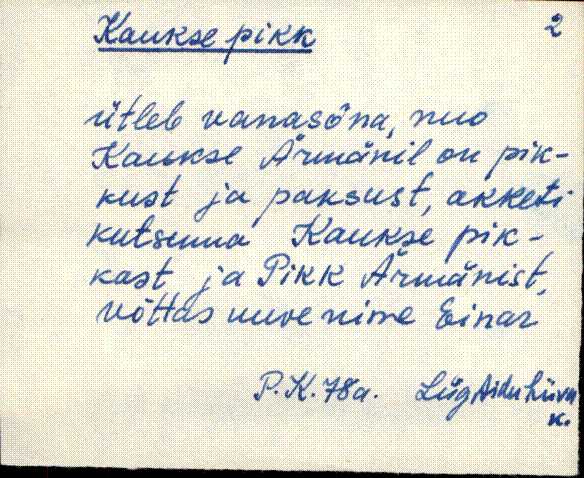 Kaukse pikk
2
ütleb vanasõna, nuo
Kaukse Ärmänil on pik-
kust ja paksust, akketi
kutsuma Kaukse pik-
kast ja Pikk Ärmänist,
võttas uuve nime Einar
P.K. 78a. Lüg Aidu Liiva
k.